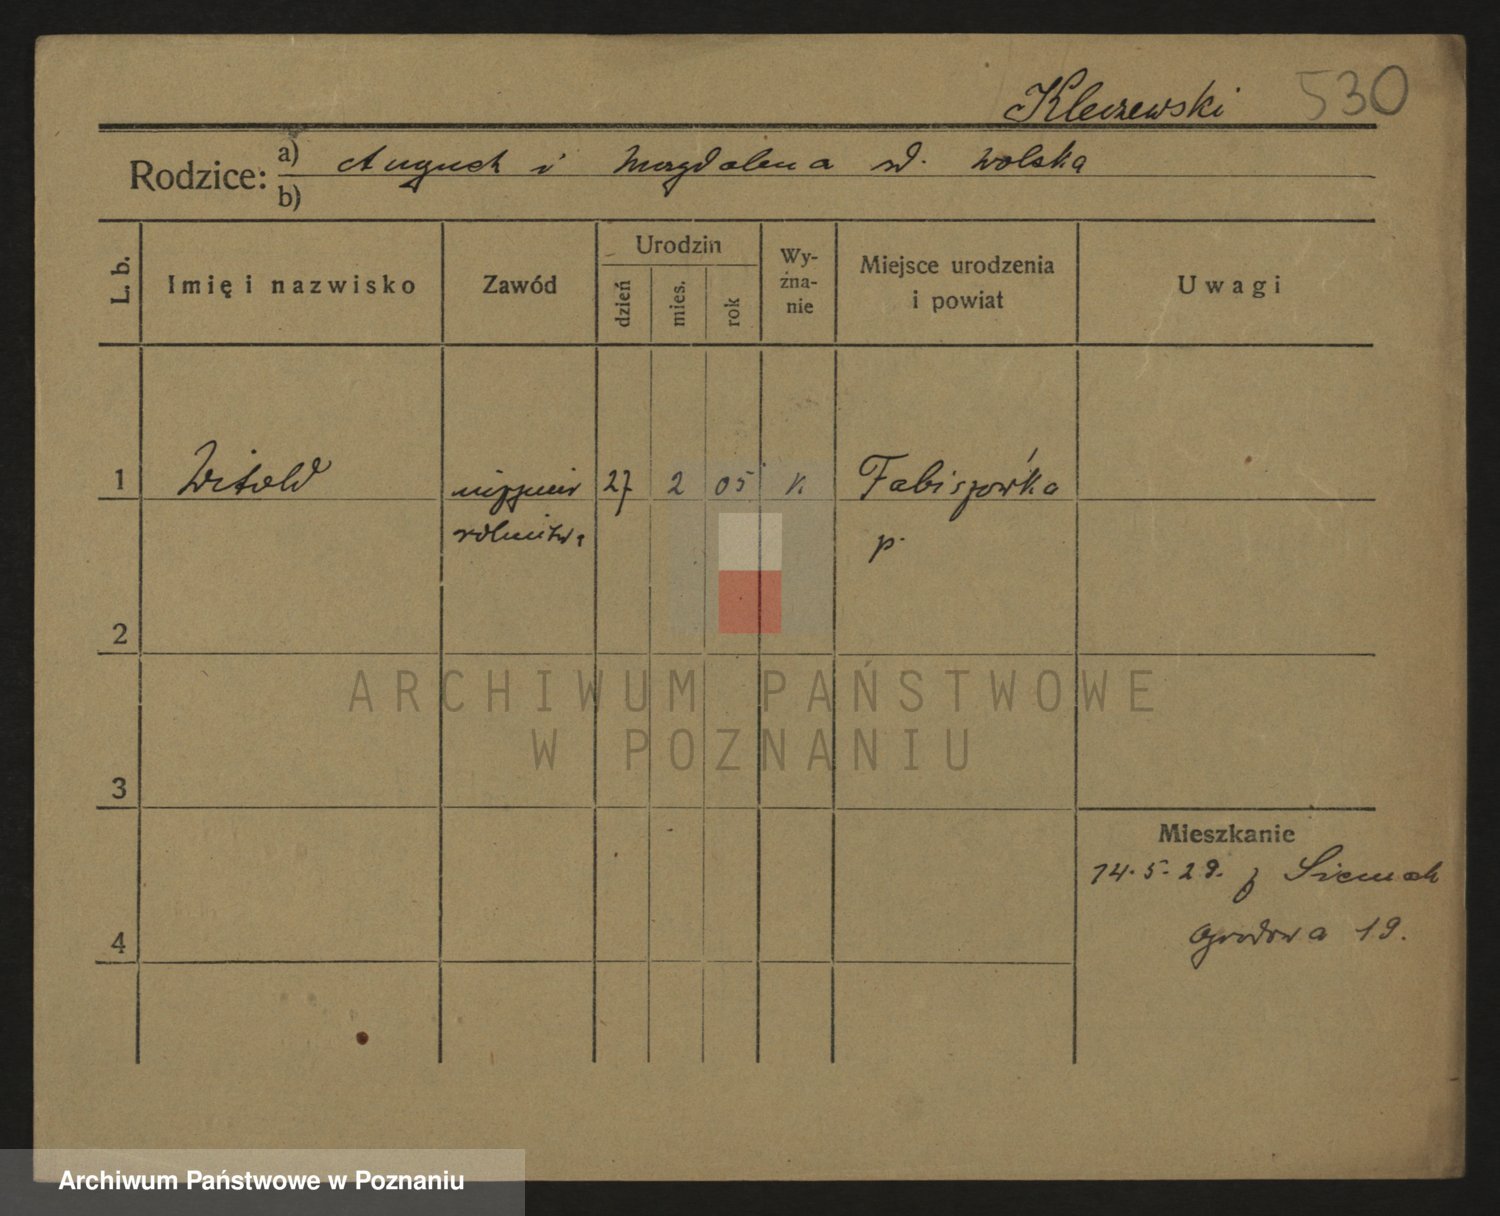 Kleczewski 530
Rodzice: a) August i Magdalena zd. Wolska
b)
L. b.
Imię i nazwisko
Zawód
Urodzin
dzień
mies.
rok
Wy-
zna-
nie
Miejsce urodzenia
i powiat
Uwagi
1 Witold inżynier 27 2 05 k. Fabiszówka
rolnictwa p.
2
3
4
Mieszkanie
14. 5. 29. z
Ogrodowa 19.
ARCHIWUM PAŃSTWOWE
W POZNANIU
Archiwum Państwowe w Poznaniu